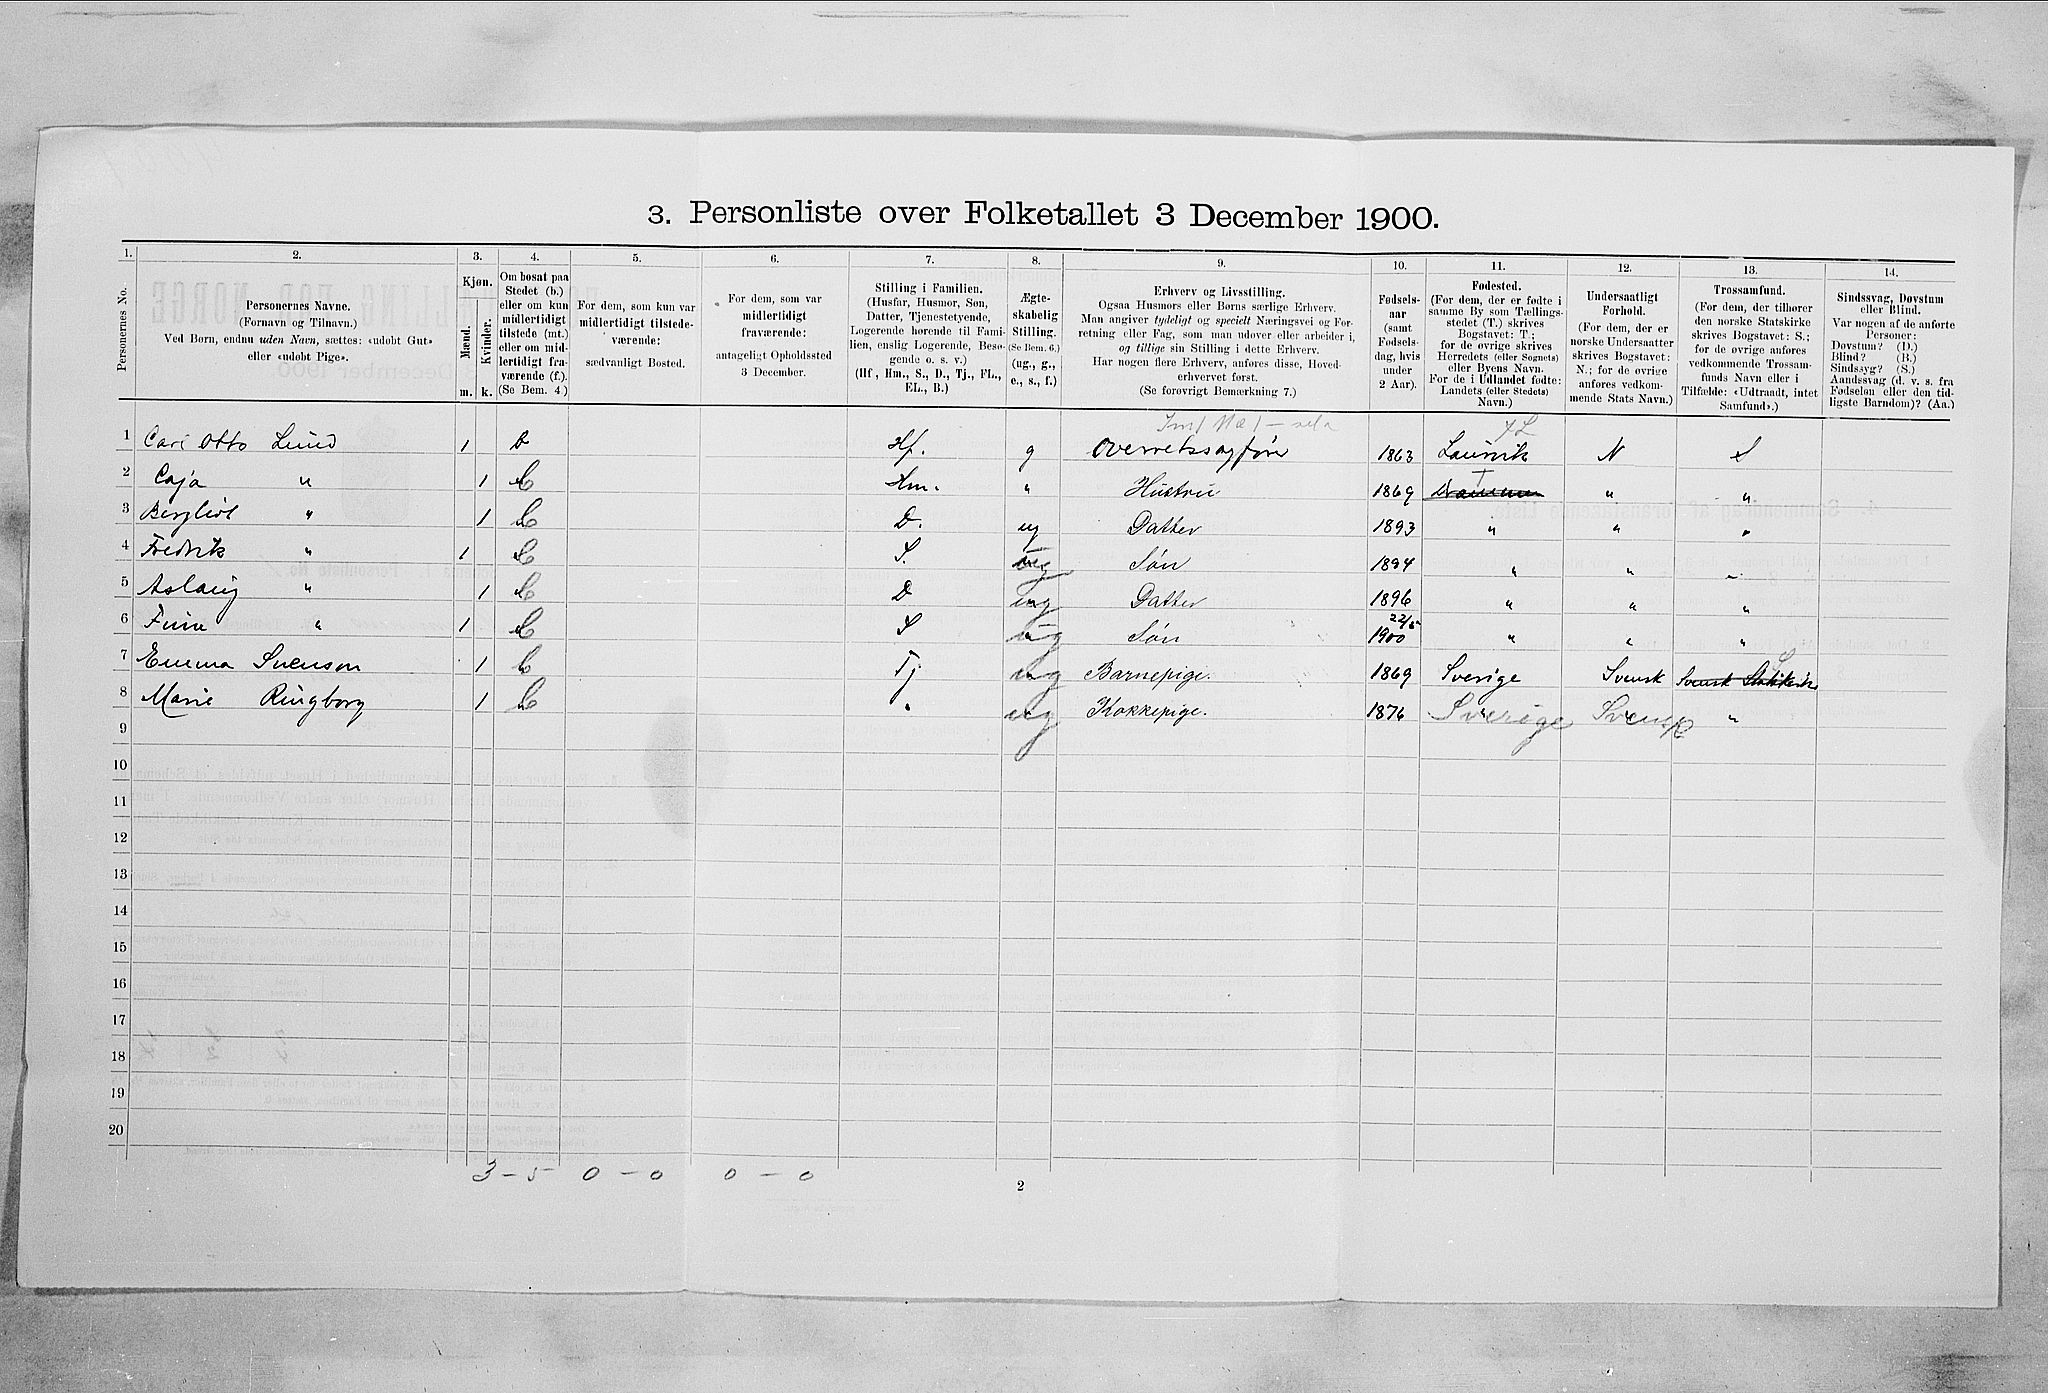 3. Personliste over Folketallet 3 December 1900.
1. 2. 3. 4. 5. 6. 7. 8. 9. 10. 11. 12. 13. 14.
Personernes No.
Personernes Navne.
(Fornavn og Tilnavn.)
Ved Børn, endnu uden Navn, sættes: «udøbt Gut»
eller «udøbt Pige».
Kjøn.
Mænd.
Kvinder.
m. k.
Om bosat paa
Stedet (b.)
eller om kun
midlertidigt
tilstede (mt.)
eller om mid-
lertidigt fra-
værende (f.).
(Se Bem. 4.)
For dem, som kun var
midlertidigt tilstede-
værende:
sædvanligt Bosted.
For dem, som var
midlertidigt
fraværende:
antageligt Opholdssted
3 December.
Stilling i Familien.
(Husfar, Husmor, Søn,
Datter, Tjenestetyende,
Logerende hørende til Fami-
lien, enslig Logerende, Besø-
gende o. s. v.)
(Hf, Hm., S., D., Tj., FL.,
EL., B.)
Ægte-
skabelig
Stilling.
(Se Bem. 6.)
(ug., g.,
e., s., f.)
Erhverv og Livsstilling.
Ogsaa Husmors eller Børns særlige Erhverv.
Man angiver tydeligt og specielt Næringsvei og For-
retning eller Fag, som man udøver eller arbeider i,
og tillige sin Stilling i dette Erhverv.
Har nogen flere Erhverv, anføres disse, Hoved-
erhvervet først.
(Se forøvrigt Bemærkning 7.)
Fødsels-
aar
(samt
Fødsels-
dag, hvis
under
2 Aar).
Fødested.
(For dem, der er fødte i
samme By som Tællings-
stedet (T.) skrives
Bogstavet: T.;
for de øvrige skrives
Herredets (eller Sognets)
eller Byens Navn.
For de i Udlandet fødte:
Landets (eller Stedets)
Navn.)
Undersaatligt
Forhold.
(For dem, der er
norske Undersaatter
skrives Bogstavet:
N.; for de øvrige
anføres vedkom-
mende Stats Navn.)
Trossamfund.
(For dem, der tilhører
den norske Statskirke
skrives Bogstavet: S.;
for de øvrige anføres
vedkommende Trossam-
funds Navn eller i
Tilfælde: «Udtraadt, intet
Samfund».)
Sindssvag, Døvstum
eller Blind.
Var nogen af de anførte
Personer:
Døvstum? (D.)
Blind? (B.)
Sindssyg? (S.)
Aandssvag (d. v. s. fra
Fødselen eller den tid-
ligste Barndom)? (Aa.)
1 Carl Otto Lund 1 b Hf. g Overretssagfører 1863 Laurvik N S
2 Caja " 1 b Hm. " Hustru 1869 T Drammen " "
3 Bergliot " 1 b D. ug Datter 1893 " " "
4 Fredrik " 1 b S. ug Søn 1894 " " "
5 Aslaug " 1 b D ug Datter 1896 " " "
6 Finn " 1 b S ug Søn 22/5 1900 " " "
7 Emma Svenson 1 b Tj ug Barnepige. 1869 Sverige Svensk S Svensk Statskirke
8 Marie Ringborg 1 b " ug Kokkepige. 1876 Sverige Svensk "
9
10
11
12
13
14
15
16
17
18
19
20
3 - 5 0 - 0 0 - 0
2